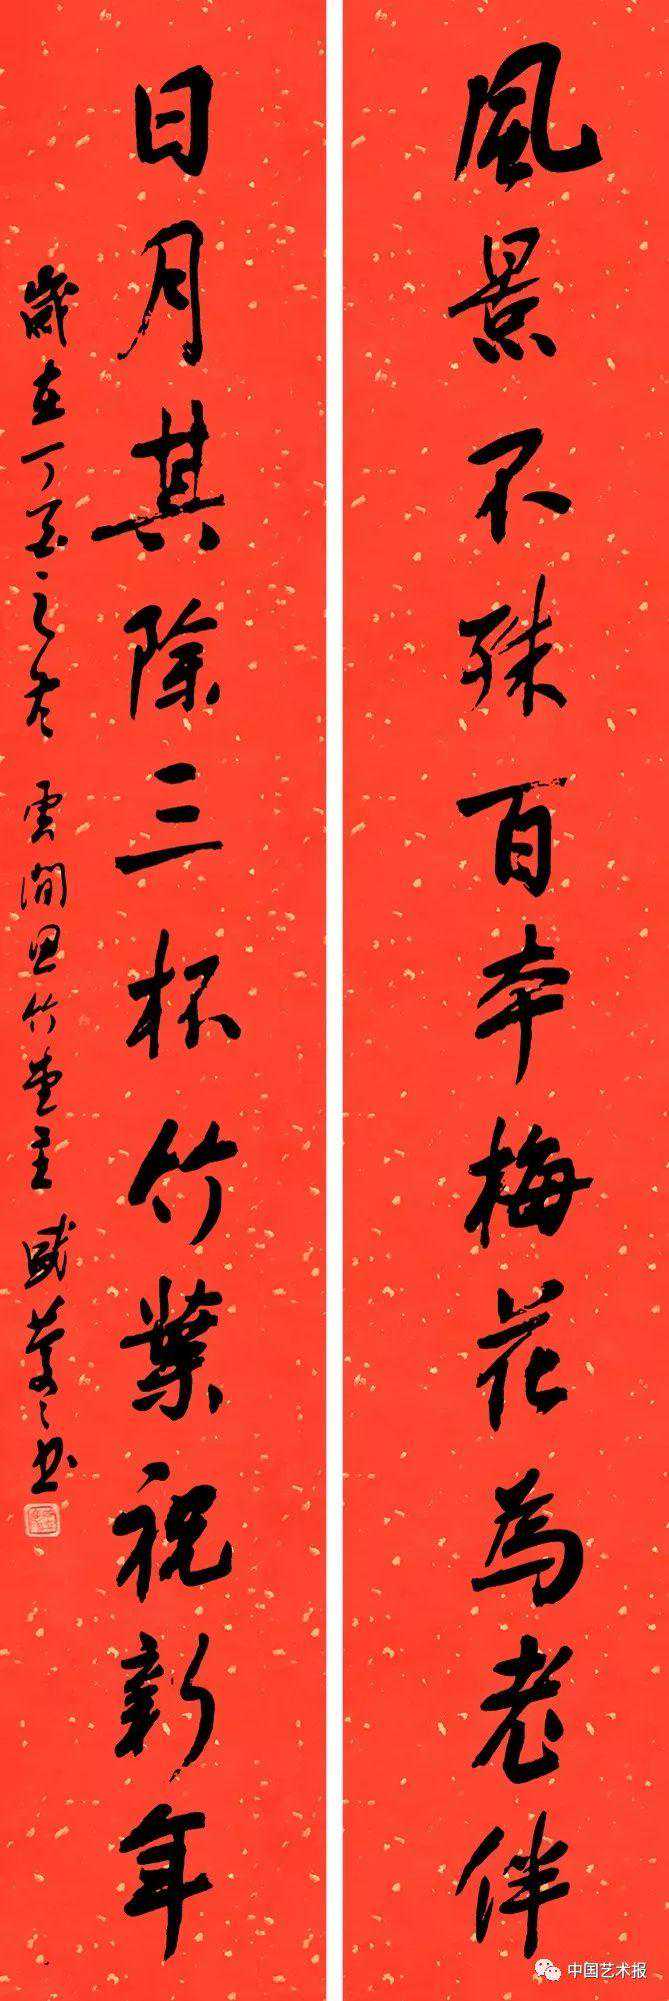 風景不殊百本梅花為老伴
日月其除三杯竹葉祝新年
歲在丁酉之冬 雲間思竹堂主 盛慶慶書
中国艺术报